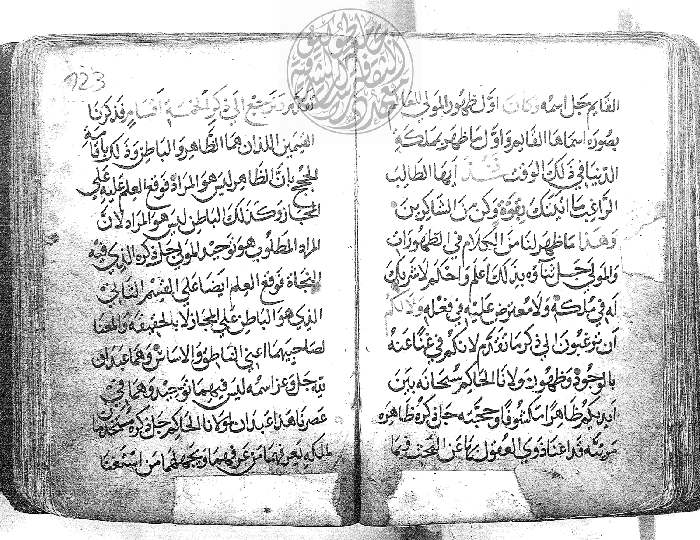 القايم جل اسمه وكان اول ظهور المولى للعالم
بصورة اسماها القايم واول ما ظهر بمملكة
الدنيا في ذلك الوقت فخذ ايها الطالب
الراغب ما اتيتك بقوة وكن من الشاكرين
وهذا ما ظهر لنا من الكلام في الظهورات
والمولى جل ثناؤه بذلك اعلم واحكم لا شريك
له في ملكه ولا معترض عليه في فعله ولا لكم
ان ترغبون الى ذكر ما تقدم لانكم في غنا عنه
بالوجود وظهور مولانا الحاكم سبحانه بين
ايديكم ظاهرا مكشوفا وحجته جل ذكره ظاهرة
مرتبته قد اغنا ذوي العقول بها عن البحث فيما
تقدم ونرجع الى ذكر الخمسة اقسام فذكرنا
القسمين اللذان هما الظاهر والباطن وذلك باقامة
الحجج بان الظاهر ليس هو المراد فوقع العلم عليه على
المجاز وكذلك الباطن ليس هو المراد لان
المراد المطلوب هو توحيد المولى جل ذكره الذي فيه
النجاة فوقع العلم ايضا على القسم الثاني
الذي هو الباطن على المجاز لا بالحقيقة والمعنا
لصاحبيهما اعني الناطق والاساس وهما عبدان
لله جل وعز اسمه ليس فيهما توحيد وهما في
عصرنا هذا عبدان لمولانا الحاكم جل ذكره سبحانه
ملكه يعرفهما من عرفهما ويجهلهما من
123